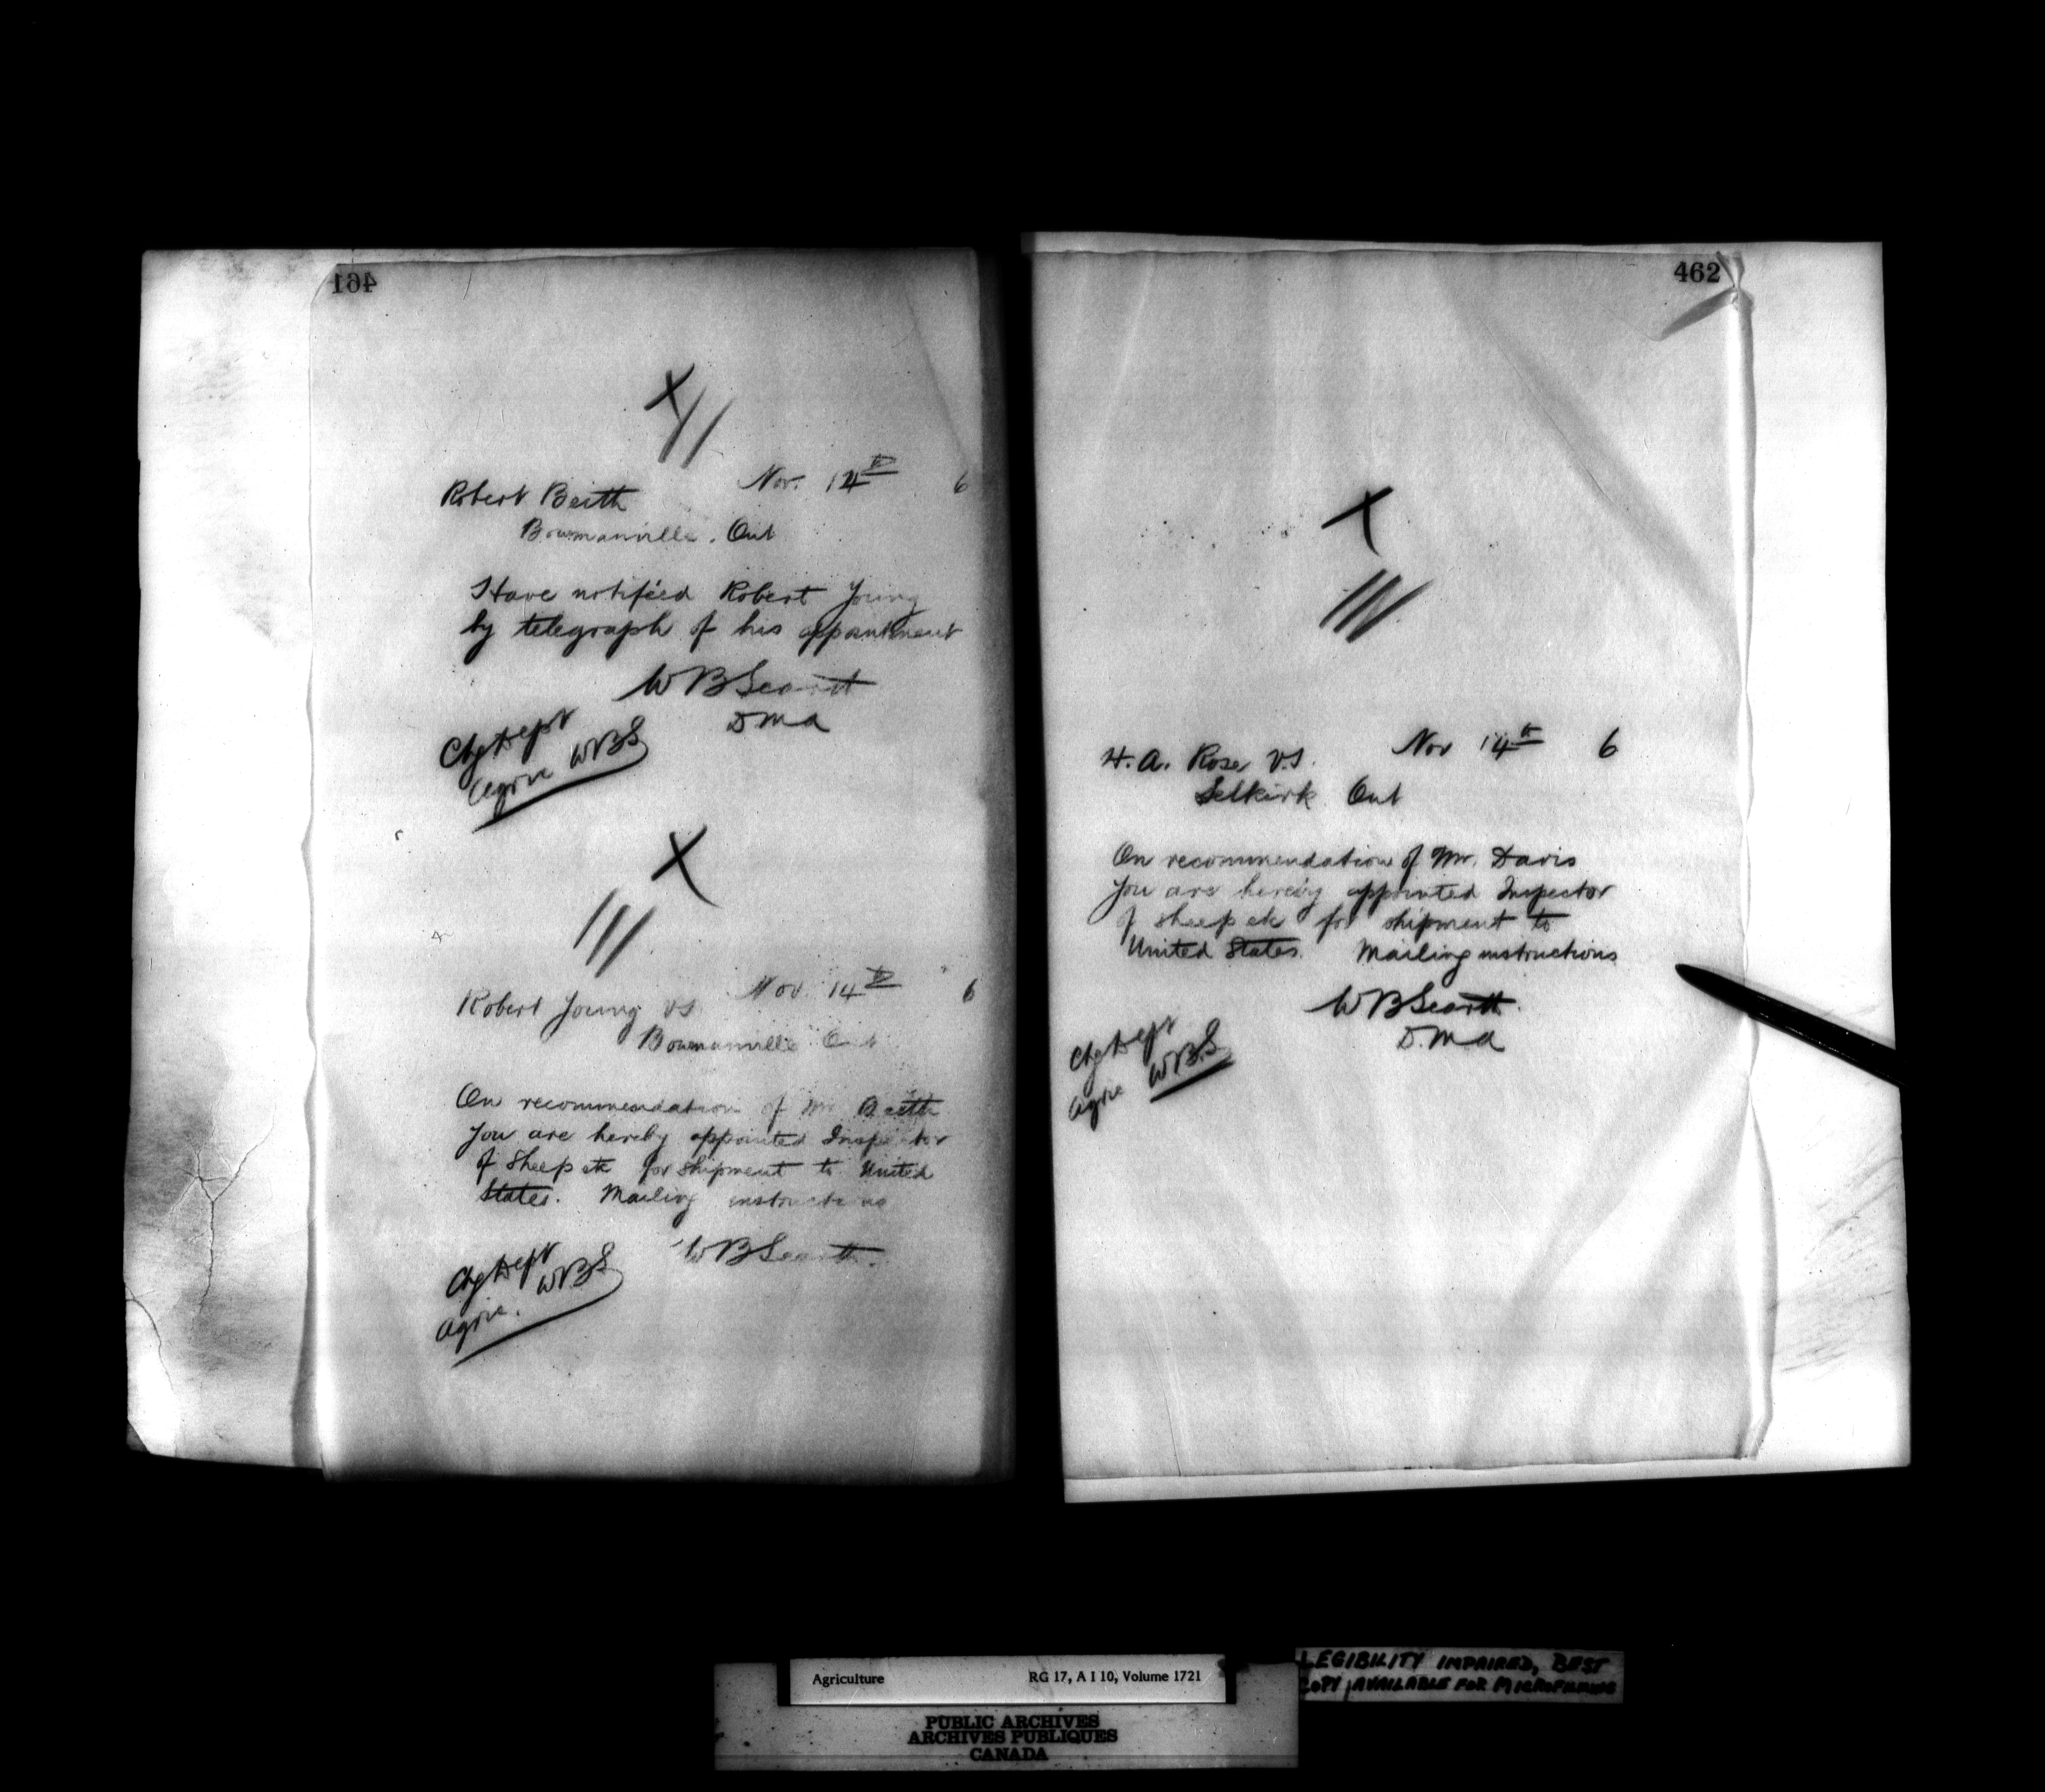 461
X
Nov. 14th 6
Robert Beith
Bowmanville. Ont
Have notified Robert Young
by telegraph of his appointment
W B Scarth
D M A
Chg Dept
Agric WBS
X
Nov. 14th 6
Robert Young VS
Bowmanville Ont
On recommendation of Mr. Beith
you are hereby appointed Inspector
of Sheep etc for shipment to United
States. Mailing instructions
W B Scarth.
Chg Dept
Agric. WBS
462
X
Nov 14th 6
H. A. Rose V.S.
Selkirk Ont
On recommendation of Mr. Davis
you are hereby appointed Inspector
of sheep etc for shipment to
United States. Mailing instructions
W B Scarth.
D. M A
Chg Dept
Agric W.B.S
Agriculture RG 17, A I 10, Volume 1721
LEGIBILITY IMPAIRED, BEST
COPY AVAILABLE FOR MICROFILMING
PUBLIC ARCHIVES
ARCHIVES PUBLIQUES
CANADA